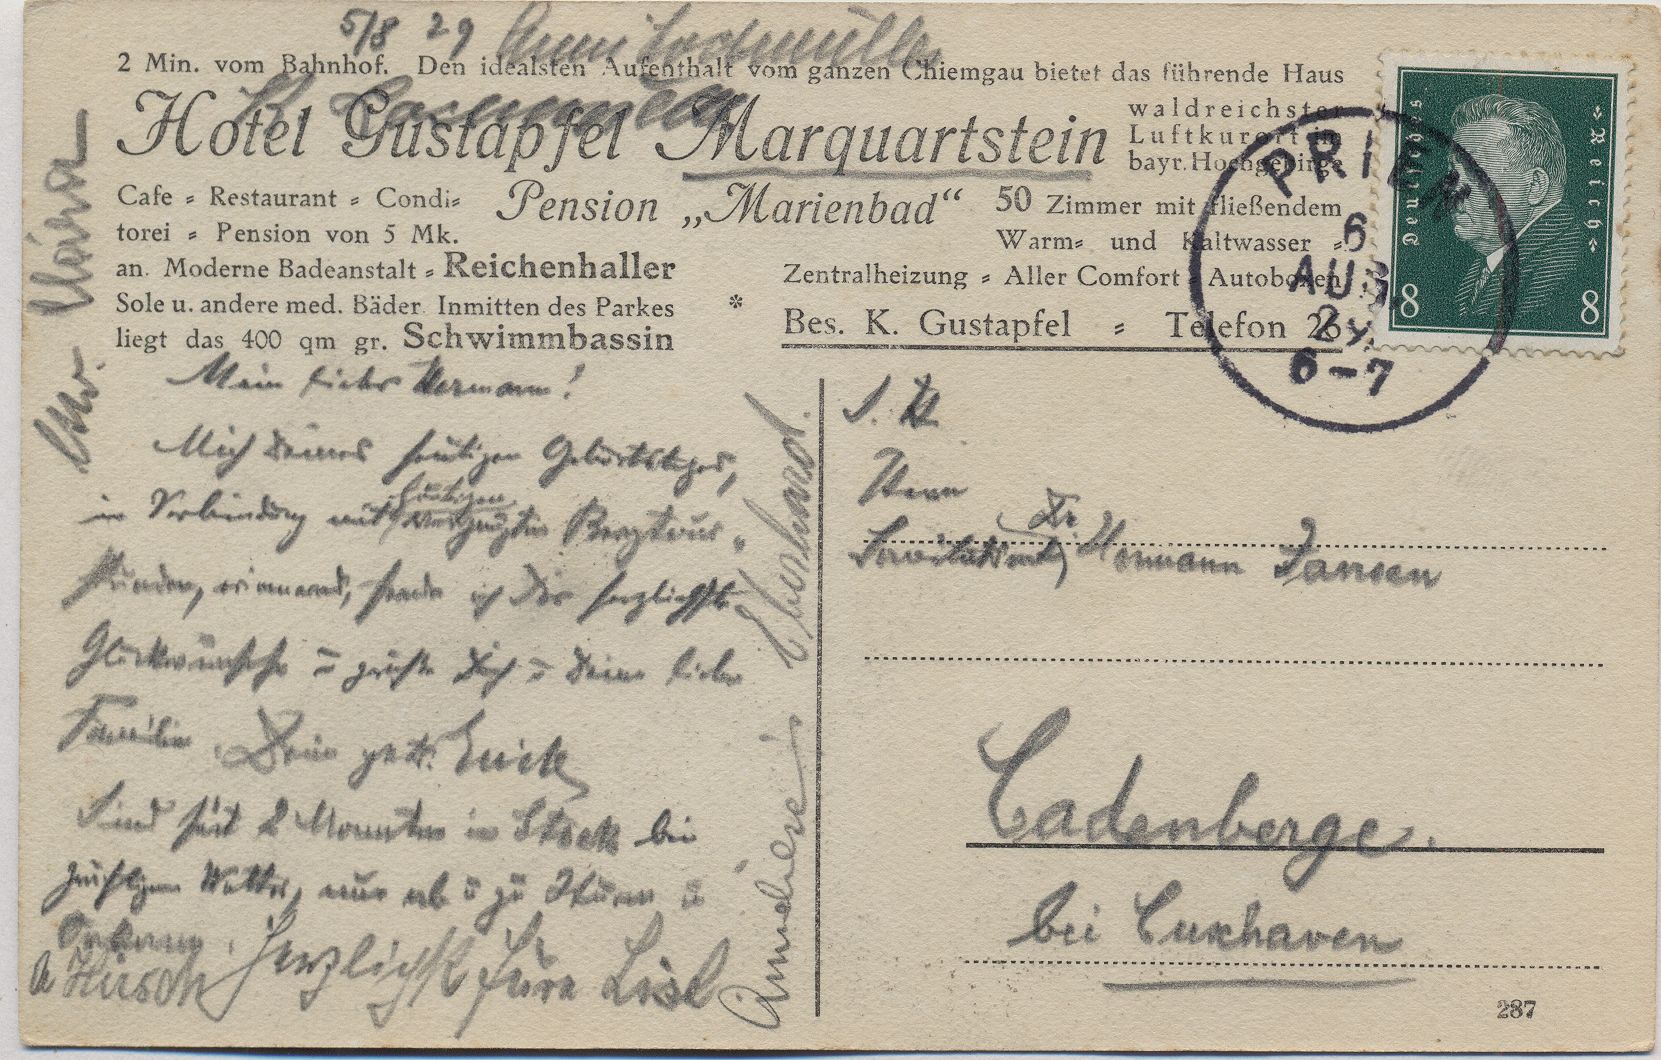 5/8 29 Anni Lachmüller
2 Min. vom Bahnhof. Den idealsten Aufenthalt vom ganzen Chiemgau bietet das führende Haus
Hotel Gustapfel Marquartstein
waldreichster
Luftkurort im
bayr. Hochgebirge
Cafe - Restaurant - Condi-
torei - Pension von 5 Mk.
an. Moderne Badeanstalt - Reichenhaller
Sole u. andere med. Bäder. Inmitten des Parkes
liegt das 400 qm gr. Schwimmbassin
Pension „Marienbad“
50 Zimmer mit fließendem
Warm- und Kaltwasser -
Zentralheizung - Aller Comfort - Autoboxen
*
Bes. K. Gustapfel - Telefon 26
Deutsches Reich
8 8
PRIEN
6
AUG.
29
6-7
Mein lieber Hermann!
Mich Deines heutigen Geburtstages,
in Verbindung mit heutigen Bergtour-
stunden, erinnernd, sende ich Dir herzlichste
Glückwünsche = grüße Dich = Deine liebe
Familie. Dein getr. Erick
Sind seit 2 Monaten in Stock bei
günstigem Wetter, nur ab ü zü Sturm ü
Herzlichst Lisl
A Hirsch
Eberhard.
Anneliese
S. H.
Herrn
Sanitätsrat Dr. Hermann Jansen
Cadenberge.
bei Cuxhaven
287